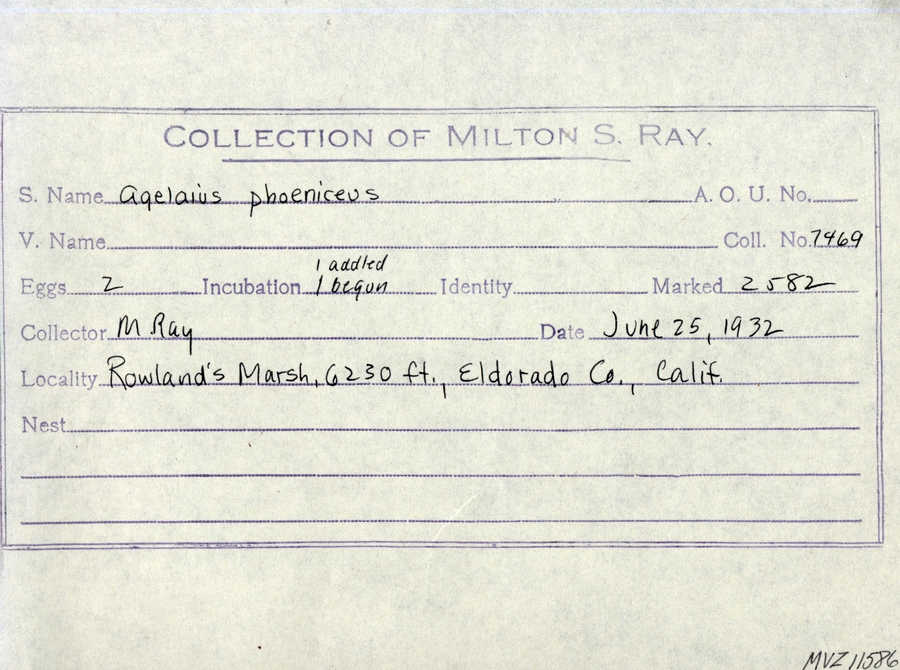 COLLECTION OF MILTON S. RAY.
S. Name Agelaius phoeniceus A. O. U. No.
V. Name Coll. No. 7469
1 addled
Eggs 2 Incubation 1 begun Identity Marked 2582
Collector M Ray Date June 25, 1932
Locality Rowland's Marsh, 6230 ft., Eldorado Co., Calif.
Nest
MVZ 11586